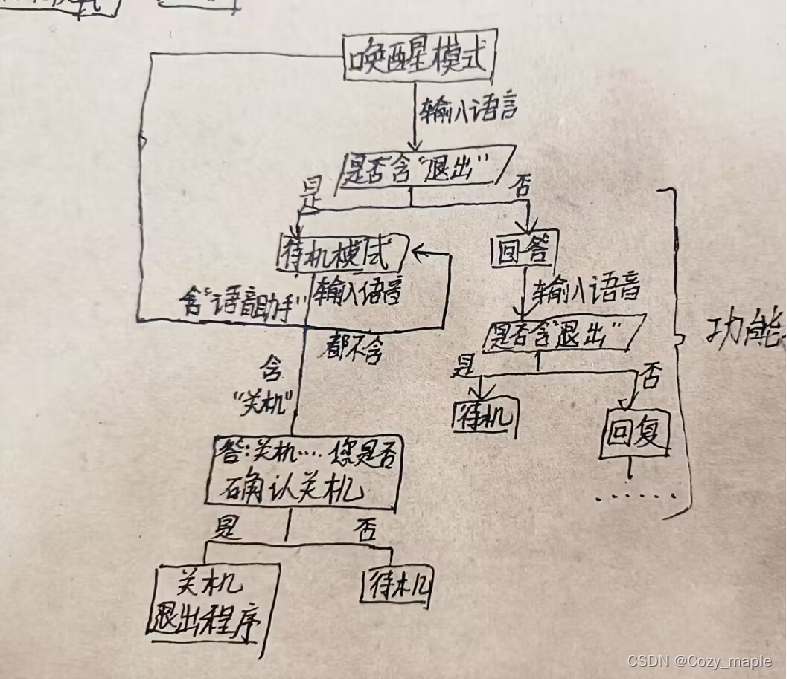 唤醒模式
输入语言
是否含“退出”
是
否
待机模式
回答
含“语音助手”
输入语音
输入语音
都不含
是否含“退出”
功能
含
“关机”
是
否
待机
回复
......
答:关机…. 您是否
确认关机
是
否
关机
退出程序
待机
CSDN @Cozy_maple